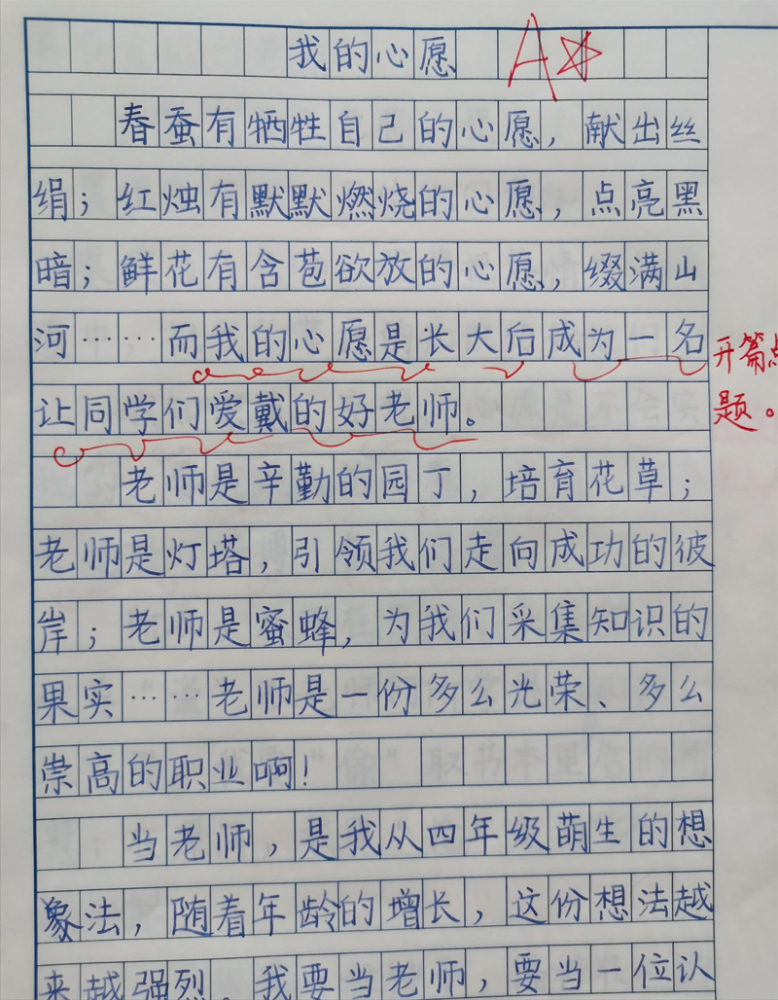 我的心愿 A☆
春蚕有牺牲自己的心愿，献出丝
绢；红烛有默默燃烧的心愿，点亮黑
暗；鲜花有含苞欲放的心愿，缀满山
河……而我的心愿是长大后成为一名
让同学们爱戴的好老师。
开篇点
题。
老师是辛勤的园丁，培育花草；
老师是灯塔，引领我们走向成功的彼
岸；老师是蜜蜂，为我们采集知识的
果实……老师是一份多么光荣、多么
崇高的职业啊！
当老师，是我从四年级萌生的想
法，随着年龄的增长，这份想法越
来越强烈。我要当老师，要当一位认